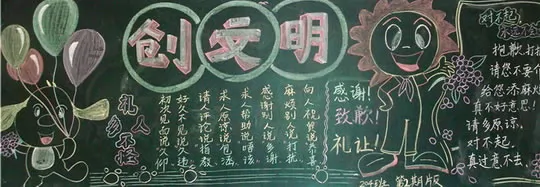 创文明
礼多人不怪
初次见面说久仰
好久不见说久违
请人评论说指教
求人原谅说包涵
求人帮助说劳驾
感谢别人说多谢
麻烦别人说打扰
向人祝贺说恭喜
感谢!
致歉!
礼让!
204班
第 期版
对不起,
抱歉打扰
请您不要介
给您添麻烦
真不好意思!
请多原谅。
对不起,
真过意不去。